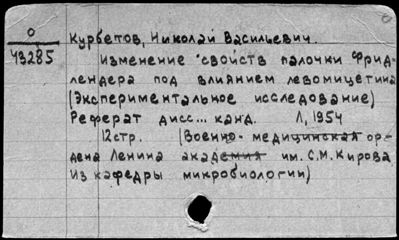 О
43285
Курбетов, Николай Васильевич.
Изменение свойств палочки Фрид-
лендера под влиянием левомицетина
(Экспериментальное исследование)
Реферат дисс... канд. Л, 1954
12стр. (Военно-медицинская ор-
дена Ленина академия им. С.М. Кирова
Из кафедры микробиологии)